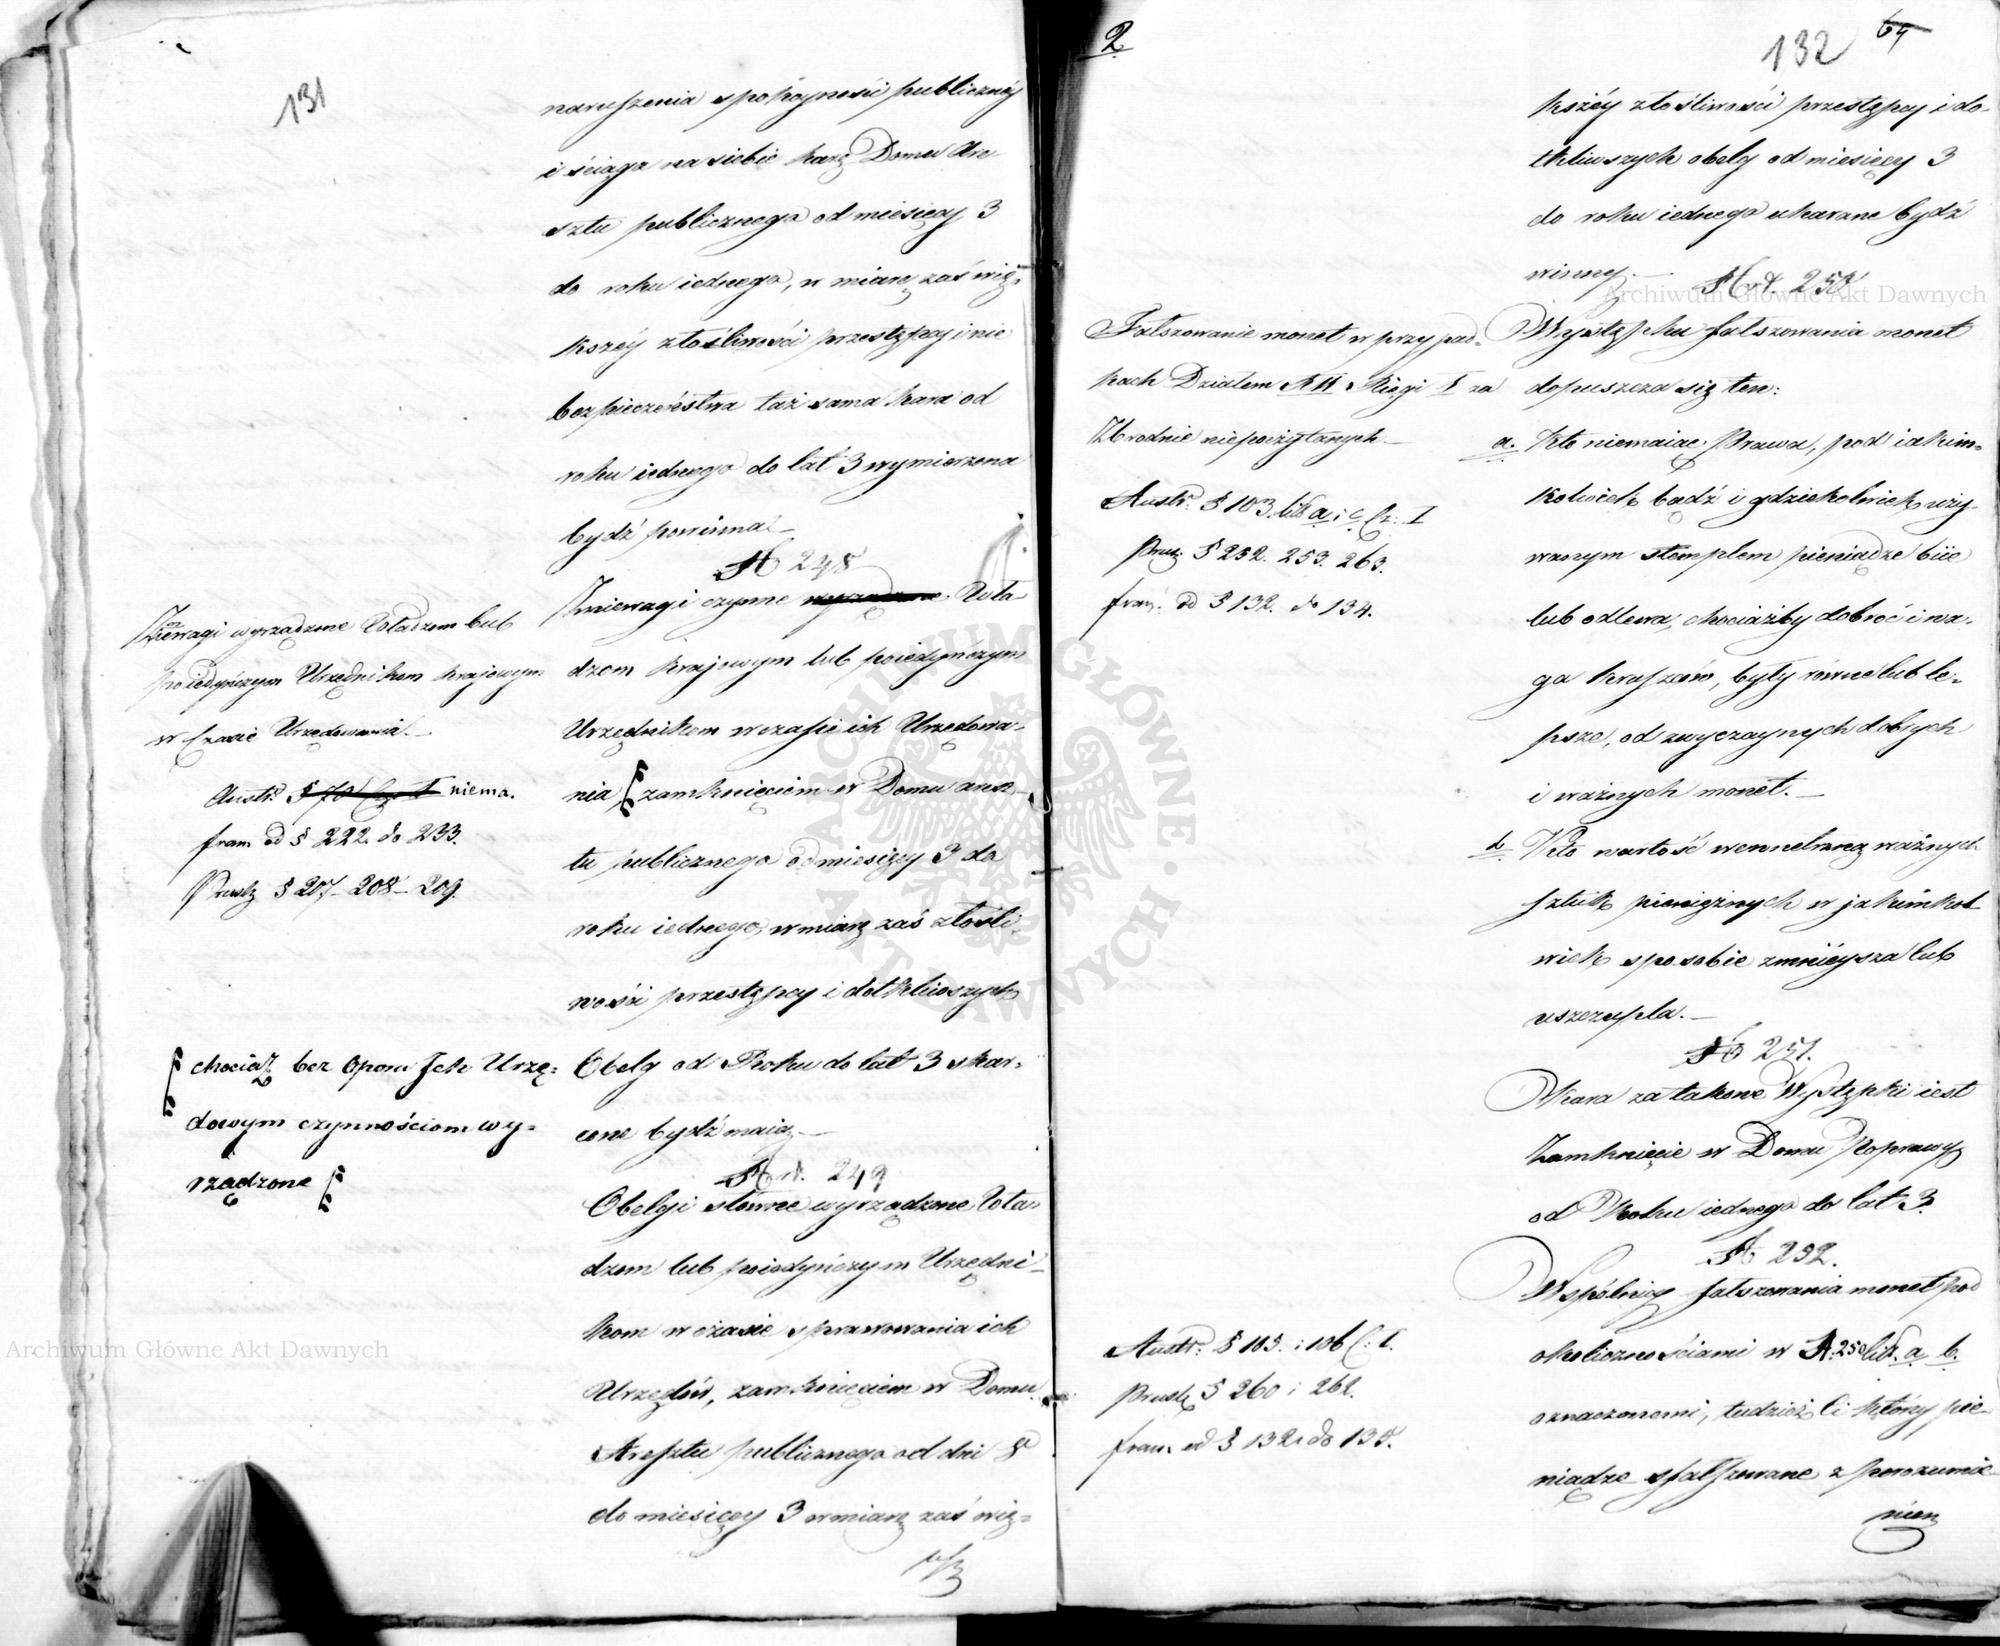 131
naruszenia spokoyności publiczney
i ściąga na siebie karę Domu Are-
sztu publicznego od miesięcy 3
do roku iednego, w miarę zaś wię-
kszéy złośliwości przestępcy i nie
bezpieczeństwa taż sama kara od
roku iednego do lat 3 wymierzona
bydź powinna.
A 248
Zniewagi wyrządzone Władzom lub
poiedyńczym Urzędnikom krajowym
w Czasie Urzędowania.
Austr. § 70 Cz. I niema.
fran. od § 222. do 233.
Prusk. § 207 - 208 - 209.
Zniewagi czynne wyrządzone Wła-
dzom krajowym lub poiedynczym
Urzędnikom w czasie ich Urzędowa-
nia zamknięciem w Domu aresz-
tu publicznego od miesięcy 3 do
roku iednego, w miarę zaś złośli-
wości przestępcy i dotkliwszych
Obelg od Roku do lat 3 skar-
cone bydź maią.
chociaż bez Oporu Ich Urzę-
dowym czynnościom wy-
rządzone
Art. 249
Obelgi słowne wyrządzone Wła-
dzom lub poiedyńczym Urzędni-
kom w czasie sprawowania ich
Urzędów, zamknięciem w Domu
Aresztu publicznego od dni 8
do miesięcy 3 w miarę zaś wię-
2
132 64
kszéy złośliwości przestępcy i do-
tkliwszych obelg od miesięcy 3
do roku iednego ukarane bydź
winny.
Art. 250
Fałszowanie monet w przypad-
kach Działem XII Xięgi I za
Zbrodnie niepoczytanych
Austr. § 103. lit. a i c Cz. I
Prus. § 252. 253. 263.
fran. od § 132. do 134.
Występku fałszowania monet
dopuszcza się ten:
a. Kto niemaiąc Prawa, pod iakim-
kolwiek bądź i gdziekolwiek uży-
wanym stemplem pieniądze biie
lub odlewa, chociażby dobroć i wa-
ga kruszców, były równe lub le-
psze, od zwyczaynych dobrych
i ważnych monet.
b. Kto wartość wewnetrzną ważnych
sztuk pienięznych w jakimkol
wiek sposobie zmnieysza lub
uszczupla.
A 251.
Kara za takowe Występki iest
Zamknięcie w Domu Poprawy
od Roku iednego do lat 3.
A 252.
Wspólnicy fałszowania monet pod
okolicznościami w A. 250 lit. a. b.
oznaczonemi, tudzież Ci którzy pie-
niądze sfałszowane z porozumie-
niem
Austr. § 103. i 106 C. I.
Prusk. § 260 i 262.
fran. od § 132 do 138.
Archiwum Główne Akt Dawnych
Archiwum Główne Akt Dawnych
ARCHIWUM GŁÓWNE AKT DAWNYCH